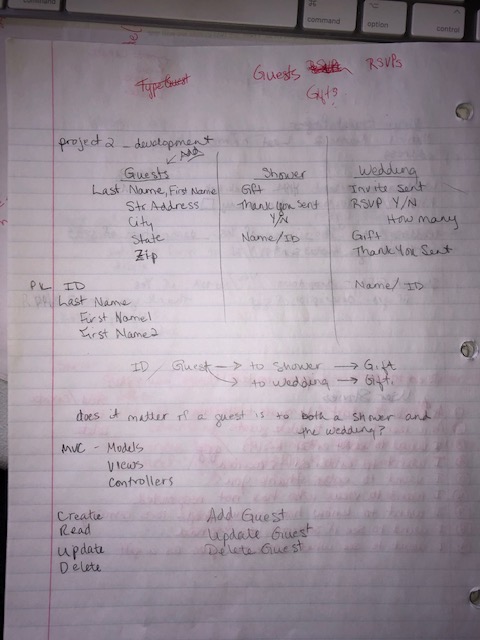 command
option
control
Guests RSVPs
Type Guest
Gifts
project 2 _ development
Add
Guests Shower Wedding
Last Name, First Name Gift Invite Sent
Str Address Thank You Sent RSVP Y/N
City Y/N How many
State Name/ID Gift
Zip Thank You Sent
PK ID Name/ID
Last Name
First Name1
First Name2
ID / Guest → to Shower → Gift
→ to Wedding → Gift.
does it matter if a guest is to both a Shower and
the wedding?
MVC - Models
Views
Controllers
Create Add Guest
Read Update Guest
Update Delete Guest
Delete